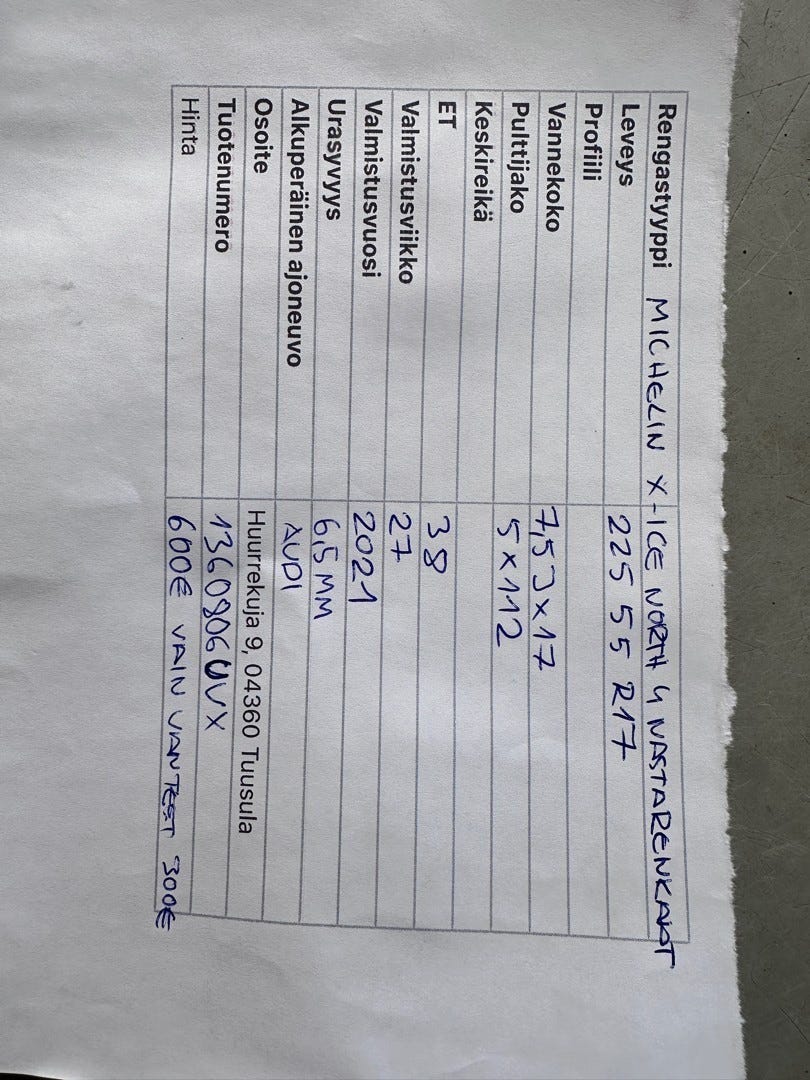 Rengastyyppi MICHELIN X-ICE NORTH 4 NASTARENKAAT
Leveys 225 55 R17
Profiili
Vannekoko 7,5J x 17
Pulttijako 5 x 112
Keskireikä
ET 38
Valmistusviikko 27
Valmistusvuosi 2021
Urasyvyys 6,5 MM
Alkuperäinen ajoneuvo AUDI
Osoite Huurrekuja 9, 04360 Tuusula
Tuotenumero 1360806UVX
Hinta 600€ VAIN VANTEET 300€